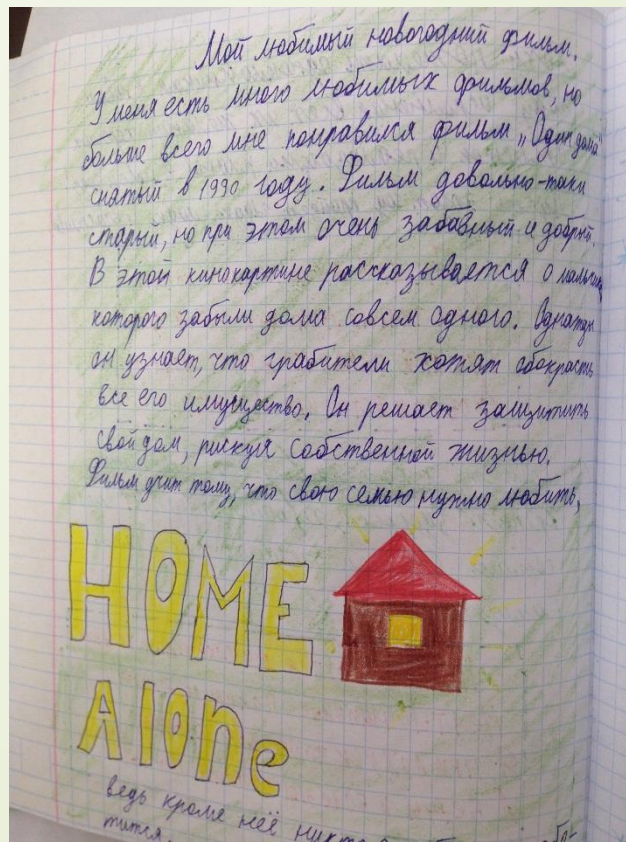 Мой любимый новогодний фильм.
У меня есть много любимых фильмов, но
больше всего мне понравился фильм „Один дома"
снятый в 1990 году. Фильм довольно-таки
старый, но при этом очень забавный и добрый.
В этой кинокартине рассказывается о мальчике
которого забыли дома совсем одного. Однажды
он узнает, что грабители хотят обокрасть
все его имущество. Он решает защитить
свой дом, рискуя собственной жизнью.
Фильм учит тому, что свою семью нужно любить,
HOME
Alone
ведь кроме неё
тится.